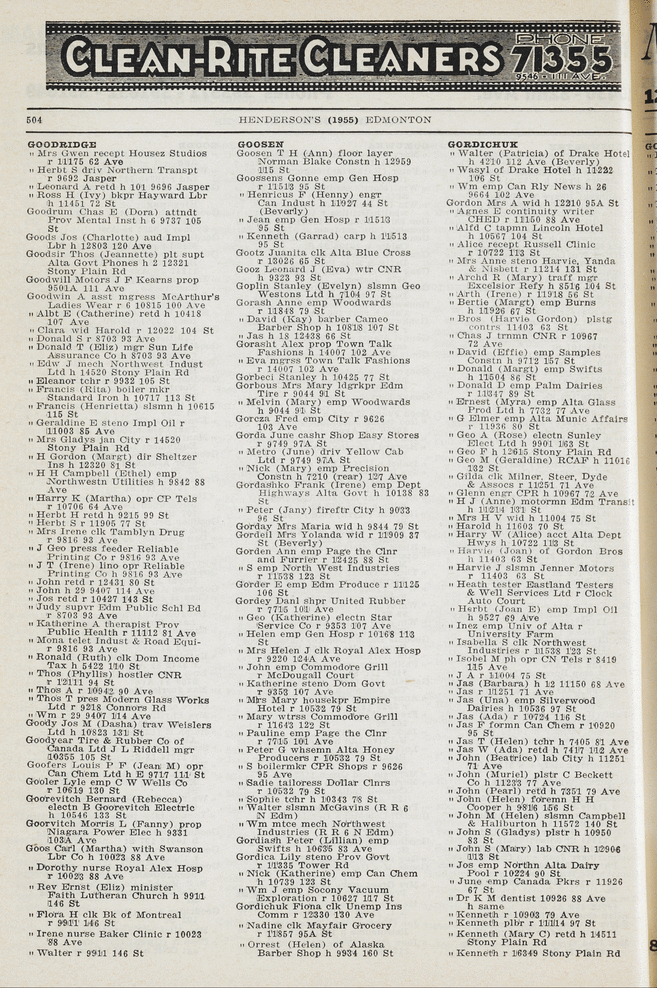 CLEAN-RITE CLEANERS
PHONE
71355
9546 - 111 AVE.
504
HENDERSON'S (1955) EDMONTON
GOODRIDGE
" Mrs Gwen recept Housez Studios
r 11175 62 Ave
" Herbt S driv Northern Transpt
r 9692 Jasper
" Leonard A retd h 101 9696 Jasper
" Ross H (Ivy) bkpr Hayward Lbr
h 11451 72 St
Goodrum Chas E (Dora) attndt
Prov Mental Inst h 6 9737 105
St
Goods Jos (Charlotte) aud Impl
Lbr h 12803 120 Ave
Goodsir Thos (Jeannette) plt supt
Alta Govt Phones h 2 12321
Stony Plain Rd
Goodwill Motors J F Kearns prop
9501A 111 Ave
Goodwin A asst mgress McArthur's
Ladies Wear r 6 10815 100 Ave
" Albt E (Catherine) retd h 10418
107 Ave
" Clara wid Harold r 12022 104 St
" Donald S r 8703 93 Ave
" Donald T (Eliz) mgr Sun Life
Assurance Co h 8703 93 Ave
" Edw J mech Northwest Indust
Ltd h 14520 Stony Plain Rd
" Eleanor tchr r 9932 105 St
" Francis (Rita) boiler mkr
Standard Iron h 10717 113 St
" Francis (Henrietta) slsmn h 10615
115 St
" Geraldine E steno Impl Oil r
11003 85 Ave
" Mrs Gladys jan City r 14520
Stony Plain Rd
" H Gordon (Margt) dir Sheltzer
Ins h 12320 81 St
" H H Campbell (Ethel) emp
Northwestn Utilities h 9842 88
Ave
" Harry K (Martha) opr CP Tels
r 10706 64 Ave
" Herbt H retd h 9215 99 St
" Herbt S r 11905 77 St
" Mrs Irene clk Tamblyn Drug
r 9816 93 Ave
" J Geo press feeder Reliable
Printing Co r 9816 93 Ave
" J T (Irene) lino opr Reliable
Printing Co h 9816 93 Ave
" John retd r 12431 80 St
" John h 29 9407 114 Ave
" Jos retd r 10427 143 St
" Judy supvr Edm Public Schl Bd
r 8703 93 Ave
" Katherine A therapist Prov
Public Health r 11112 81 Ave
" Mona telet Indust & Road Equi-
r 9816 93 Ave
" Ronald (Ruth) clk Dom Income
Tax h 5422 110 St
" Thos (Phyllis) hostler CNR
r 12111 94 St
" Thos A r 10942 90 Ave
" Thos T pres Modern Glass Works
Ltd r 9218 Connors Rd
" Wm r 29 9407 114 Ave
Goody Jos M (Dasha) trav Weislers
Ltd h 10823 131 St
Goodyear Tire & Rubber Co of
Canada Ltd J L Riddell mgr
10355 105 St
Goofers Louis P F (Jean M) opr
Can Chem Ltd h E 9717 111 St
Gooler Lyle emp C W Wells Co
r 10619 130 St
Goorevitch Bernard (Rebecca)
electn B Goorevitch Electric
h 10546 133 St
Goorvitch Morris L (Fanny) prop
Niagara Power Elec h 9331
103A Ave
Goos Carl (Martha) with Swanson
Lbr Co h 10023 88 Ave
" Dorothy nurse Royal Alex Hosp
r 10023 88 Ave
" Rev Ernst (Eliz) minister
Faith Lutheran Church h 9911
146 St
" Flora H clk Bk of Montreal
r 9911 146 St
" Irene nurse Baker Clinic r 10023
88 Ave
" Walter r 9911 146 St
GOOSEN
Goosen T H (Ann) floor layer
Norman Blake Constn h 12959
115 St
Goossens Gonne emp Gen Hosp
r 11513 95 St
" Henricus F (Henny) engr
Can Indust h 11927 44 St
(Beverly)
" Jean emp Gen Hosp r 11513
95 St
" Kenneth (Garrad) carp h 11513
95 St
Gootz Juanita clk Alta Blue Cross
r 13026 65 St
Gooz Leonard A (Eva) wtr CNR
h 9323 93 St
Goplin Stanley (Evelyn) slsmn Geo
Westons Ltd h 7104 97 St
Gorash Anne emp Woodwards
r 11848 79 St
" David (Kay) barber Cameo
Barber Shop h 10818 107 St
" Jas h 18 12438 66 St
Gorasht Alex prop Town Talk
Fashions h 14007 102 Ave
" Eva mgrss Town Talk Fashions
r 14007 102 Ave
Gorbeci Stanley h 10425 77 St
Gorbous Mrs Mary ldgrkpr Edm
Tire r 9044 91 St
" Melvin (Mary) emp Woodwards
h 9044 91 St
Gorcza Fred emp City r 9626
103 Ave
Gorda June cashr Shop Easy Stores
r 9749 97A St
" Metro (June) driv Yellow Cab
Ltd r 9749 97A St
" Nick (Mary) emp Precision
Constn h 7210 (rear) 127 Ave
Gordashko Frank (Irene) emp Dept
Highways Alta Govt h 10138 83
St
" Peter (Jany) fireftr City h 9033
96 St
Gorday Mrs Maria wid h 9844 79 St
Gordeil Mrs Yolanda wid r 11909 37
St (Beverly)
Gorden Ann emp Page the Clnr
and Furrier r 12425 88 St
" S emp North West Industries
r 11538 123 St
Gorder E emp Edm Produce r 11125
106 St
Gordey Danl shpr United Rubber
r 7715 101 Ave
" Geo (Katherine) electn Star
Service Co r 9353 107 Ave
" Helen emp Gen Hosp r 10168 113
St
" Mrs Helen J clk Royal Alex Hosp
r 9220 124A Ave
" John emp Commodore Grill
r McDougall Court
" Katherine steno Dom Govt
r 9353 107 Ave
" Mrs Mary housekpr Empire
Hotel r 10532 79 St
" Mary wtrss Commodore Grill
r 11643 122 St
" Pauline emp Page the Clnr
r 7715 101 Ave
" Peter G whsemn Alta Honey
Producers r 10532 79 St
" S boilermkr CPR Shops r 9626
95 Ave
" Sadie tailoress Dollar Clnrs
r 10532 79 St
" Sophie tchr h 10343 78 St
" Walter slsmn McGavins (R R 6
N Edm)
" Wm mtce mech Northwest
Industries (R R 6 N Edm)
Gordiash Peter (Lillian) emp
Swifts h 10635 83 Ave
Gordica Lily steno Prov Govt
r 11335 Tower Rd
" Nick (Katherine) emp Can Chem
h 10739 123 St
" Wm J emp Socony Vacuum
Exploration r 10627 117 St
Gordichuk Fiona clk Unemp Ins
Comm r 12330 130 Ave
" Nadine clk Mayfair Grocery
r 11857 95A St
" Orrest (Helen) of Alaska
Barber Shop h 9934 160 St
GORDICHUK
" Walter (Patricia) of Drake Hotel
h 4210 112 Ave (Beverly)
" Wasyl of Drake Hotel h 11232
106 St
" Wm emp Can Rly News h 26
9664 102 Ave
Gordon Mrs A wid h 12210 95A St
" Agnes E continuity writer
CHED r 11150 88 Ave
" Alfd C tapmn Lincoln Hotel
h 10567 104 St
" Alice recept Russell Clinic
r 10722 113 St
" Mrs Anne steno Harvie, Yanda
& Nisbett r 11214 131 St
" Archd R (Mary) traff mgr
Excelsior Refy h 8516 104 St
" Arth (Irene) r 11918 56 St
" Bertie (Margt) emp Burns
h 11926 67 St
" Bros (Harvie Gordon) plstg
contrs 11403 63 St
" Chas J trnmn CNR r 10967
72 Ave
" David (Effie) emp Samples
Constn h 9712 157 St
" Donald (Margt) emp Swifts
h 11504 86 St
" Donald D emp Palm Dairies
r 11347 89 St
" Ernest (Myra) emp Alta Glass
Prod Ltd h 7732 77 Ave
" G Elmer emp Alta Munic Affairs
r 11936 80 St
" Geo A (Rose) electn Sunley
Elect Ltd h 9901 163 St
" Geo F h 12615 Stony Plain Rd
" Geo M (Geraldine) RCAF h 11016
132 St
" Gilda clk Milner, Steer, Dyde
& Assocs r 11251 71 Ave
" Glenn engr CPR h 10967 72 Ave
" H J (Anne) motormn Edm Transit
h 11214 131 St
" Mrs H V wid h 11004 75 St
" Harold h 11603 70 St
" Harry W (Alice) acct Alta Dept
Hwys h 10722 113 St
" Harvie (Joan) of Gordon Bros
h 11403 63 St
" Harvie J slsmn Jenner Motors
r 11403 63 St
" Heath tester Eastland Testers
& Well Services Ltd r Clock
Auto Court
" Herbt (Joan E) emp Impl Oil
h 9527 69 Ave
" Inez emp Univ of Alta r
University Farm
" Isabella S clk Northwest
Industries r 11538 123 St
" Isobel M ph opr CN Tels r 8419
115 Ave
" J A r 11004 75 St
" Jas (Barbara) h 12 11150 68 Ave
" Jas r 11251 71 Ave
" Jas (Una) emp Silverwood
Dairies h 10536 97 St
" Jas (Ada) r 10724 116 St
" Jas F formn Can Chem r 10920
95 St
" Jas T (Helen) tchr h 7405 81 Ave
" Jas W (Ada) retd h 7417 112 Ave
" John (Beatrice) lab City h 11251
71 Ave
" John (Muriel) plstr C Beckett
Co h 11233 77 Ave
" John (Pearl) retd h 7351 79 Ave
" John (Helen) foremn H H
Cooper h 9816 156 St
" John M (Helen) slsmn Campbell
& Haliburton h 11572 140 St
" John S (Gladys) plstr h 10950
83 St
" John S (Mary) lab CNR h 12906
113 St
" Jos emp Northn Alta Dairy
Pool r 10224 90 St
" June emp Canada Pkrs r 11926
67 St
" Dr K M dentist 10926 88 Ave
h same
" Kenneth r 10903 79 Ave
" Kenneth plbr r 11114 97 St
" Kenneth (Mary C) retd h 14511
Stony Plain Rd
" Kenneth r 16349 Stony Plain Rd